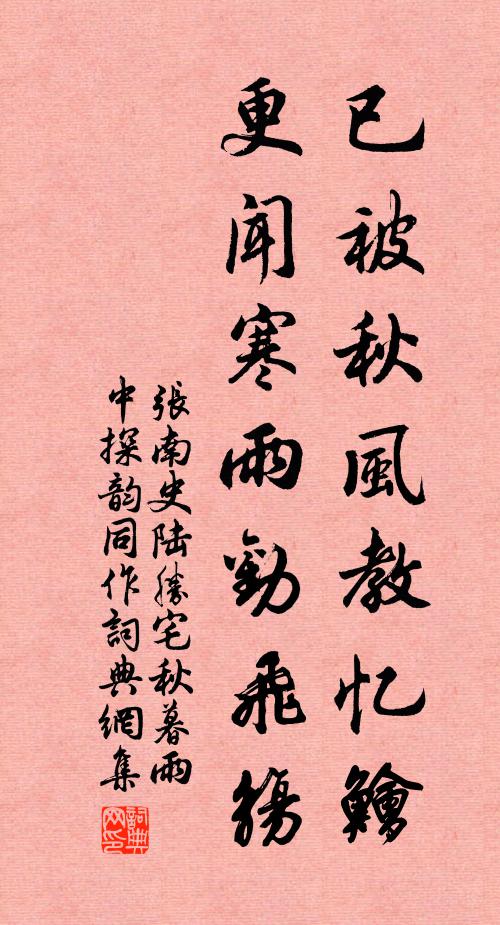 已被秋風教忆鱠
更闻寒雨勸飛觴
張南史陆勝宅秋暮雨
中探韵同作詞典網集
詞典网印